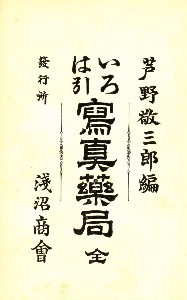 芦野敬三郎編
いろは引
寫真藥局 全
發行所
淺沼商會